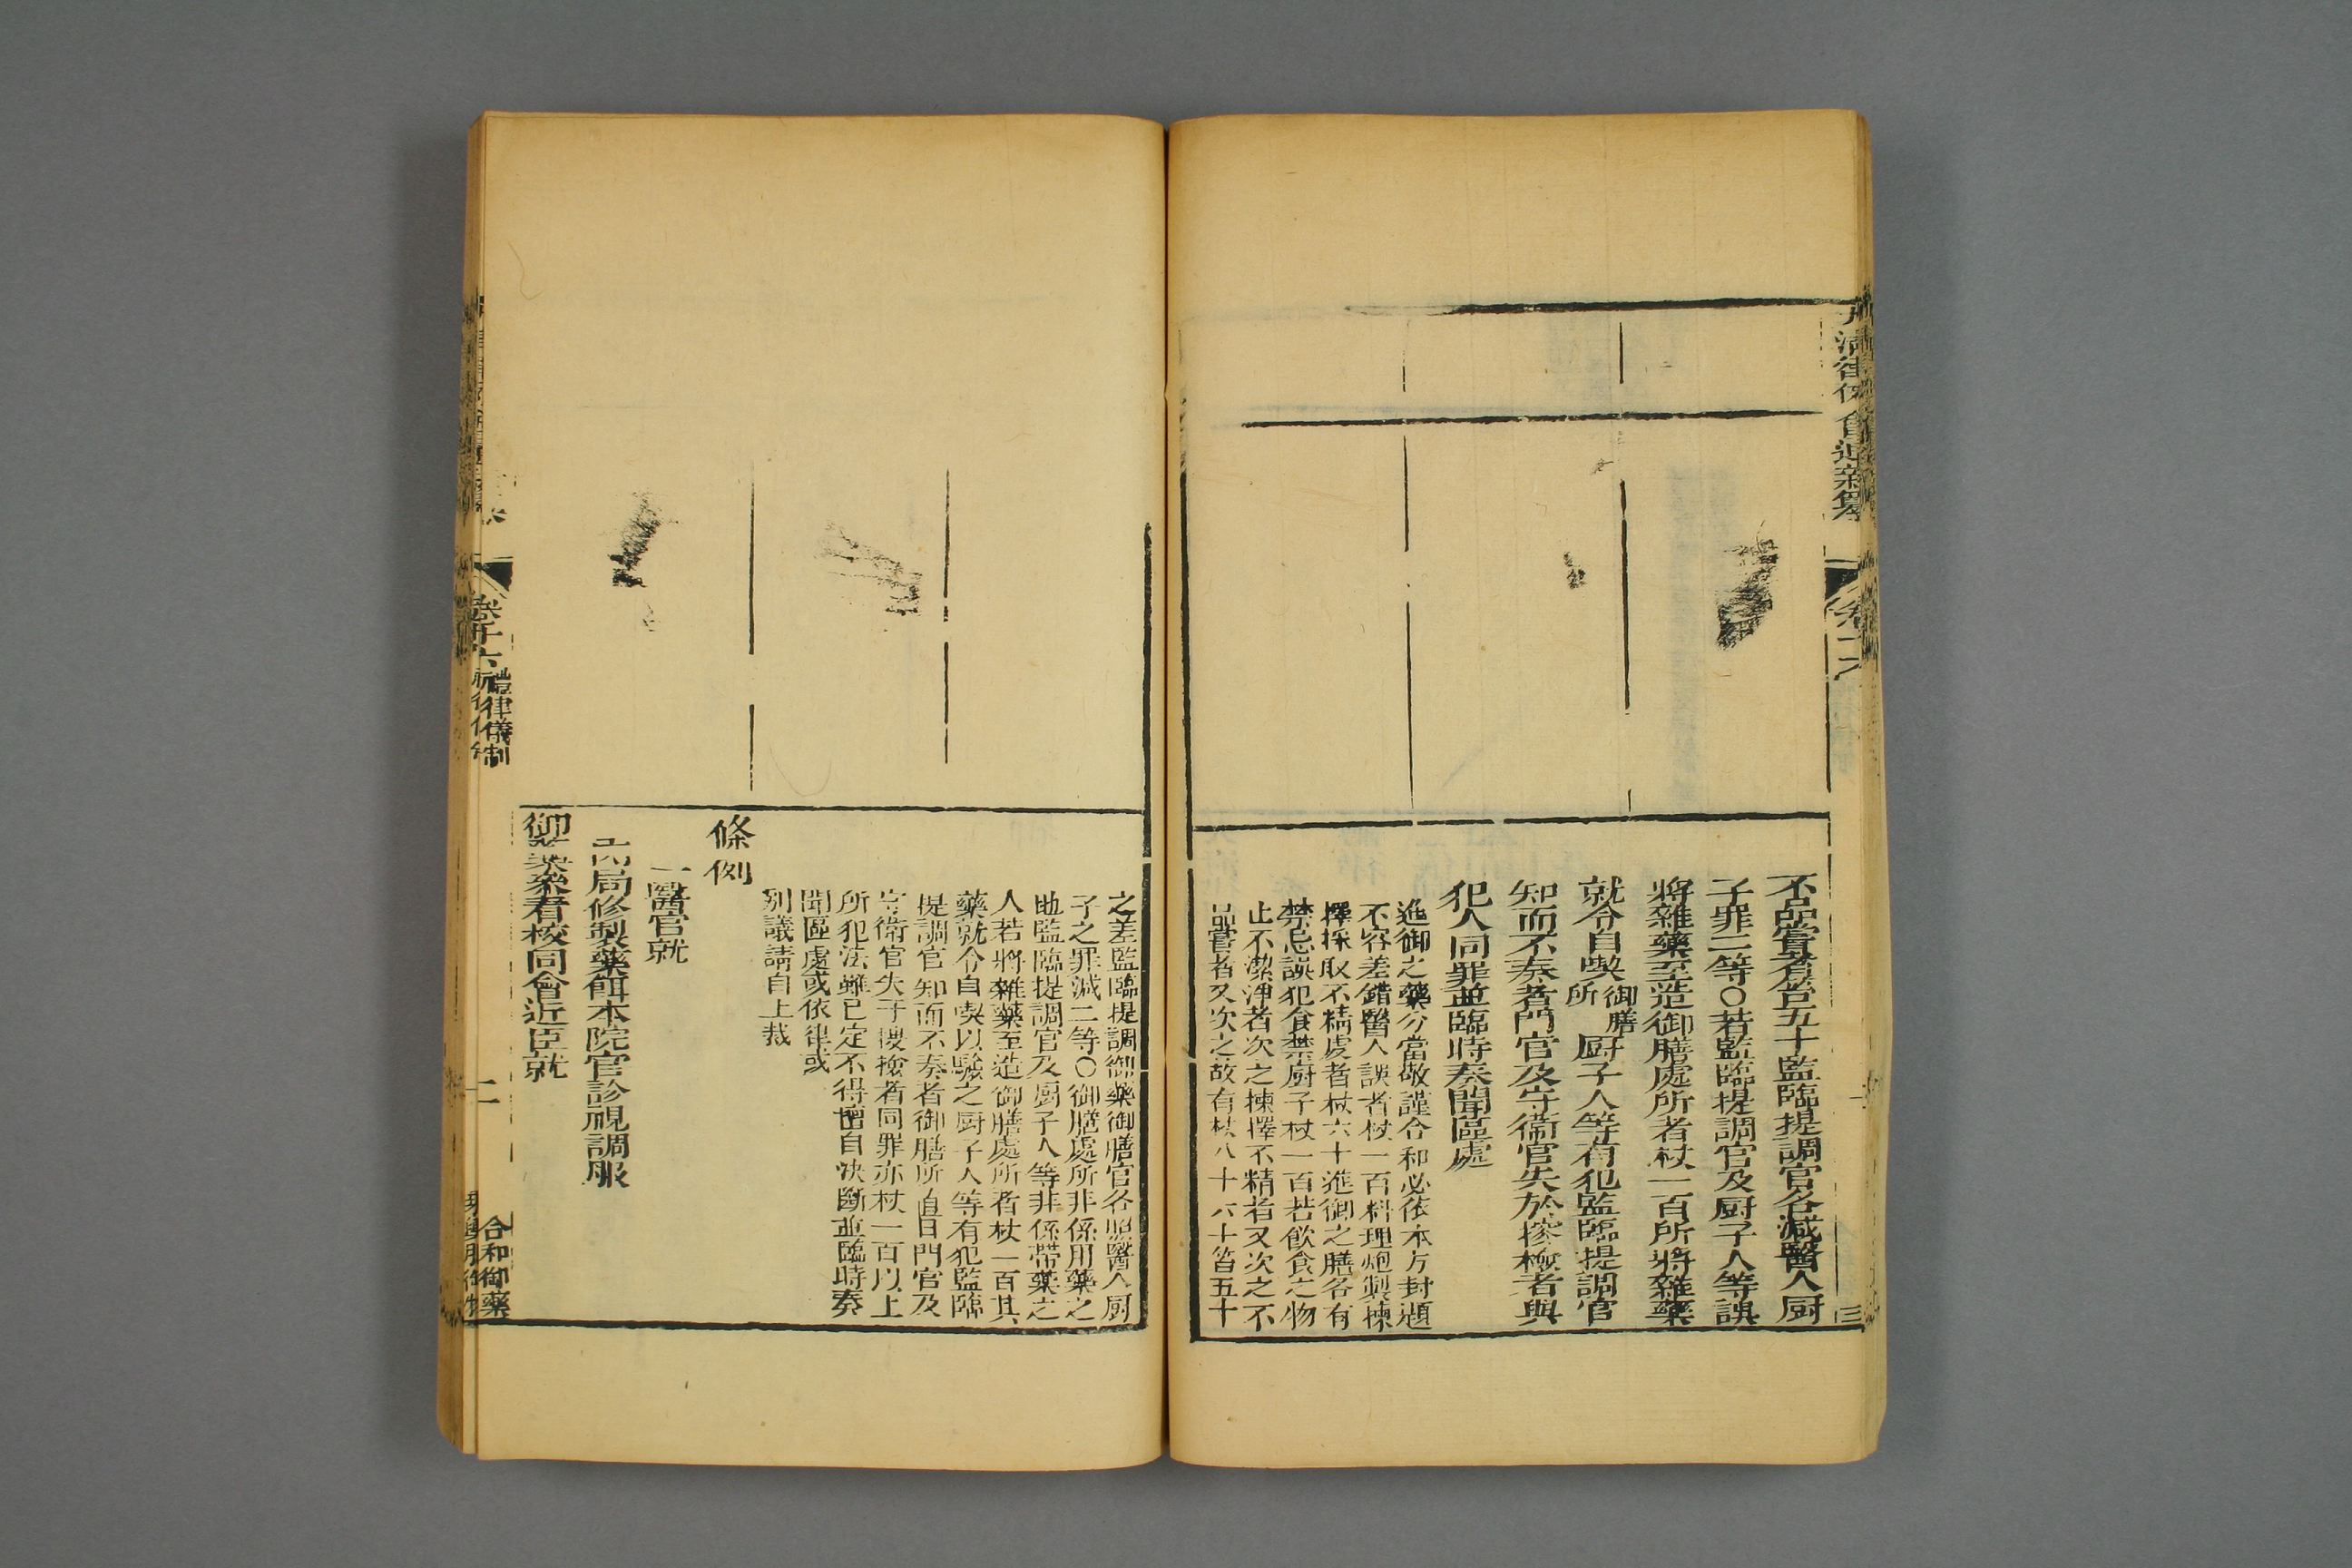 不品嘗者笞五十監臨提調官各減醫人厨
子罪二等○若監臨提調官及厨子人等誤
將雜藥至造御膳處所者杖一百所將雜藥
就令自喫御膳所厨子人等有犯監臨提調官
知而不奏者門官及守衞官失於搜檢者與
犯人同罪並臨時奏聞區處
進御之藥分當敬謹合和必依本方封題
不容差錯醫人誤者杖一百料理炮製揀
擇採取不精處者杖六十進御之膳各有
禁忌誤犯食禁厨子杖一百若飲食之物
止不潔淨者次之揀擇不精者又次之不
品嘗者又次之故有杖八十六十笞五十
之差監臨提調御藥御膳官各照醫人厨
子之罪減二等○御膳處所非係用藥之
地監臨提調官及厨子人等非係帶藥之
人若將雜藥至造御膳處所者杖一百其
藥就令自喫以驗之厨子人等有犯監臨
提調官知而不奏者御膳所直日門官及
守衞官失于搜檢者同罪亦杖一百以上
所犯法雖已定不得擅自決斷並臨時奏
聞區處或依律或
別議請自上裁
條例
一醫官就
內局修製藥餌本院官診視調服
御藥叅看校同會近臣就
卷十六
禮律儀制
二
合和御藥
三